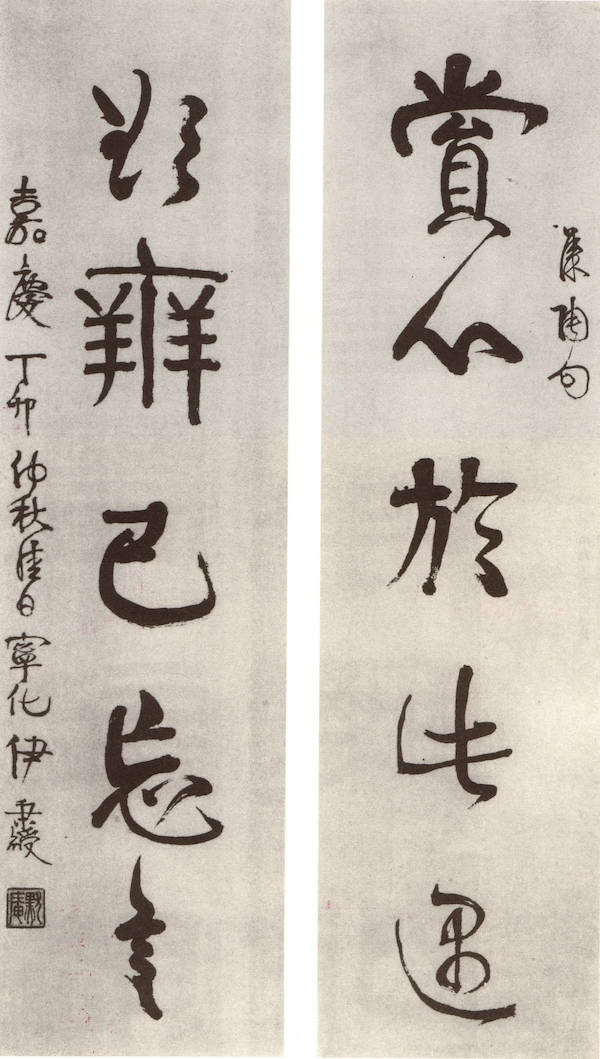 集陶句
賞心於此遇
欲辨已忘言
嘉慶丁卯仲秋佳日寧化伊秉綬